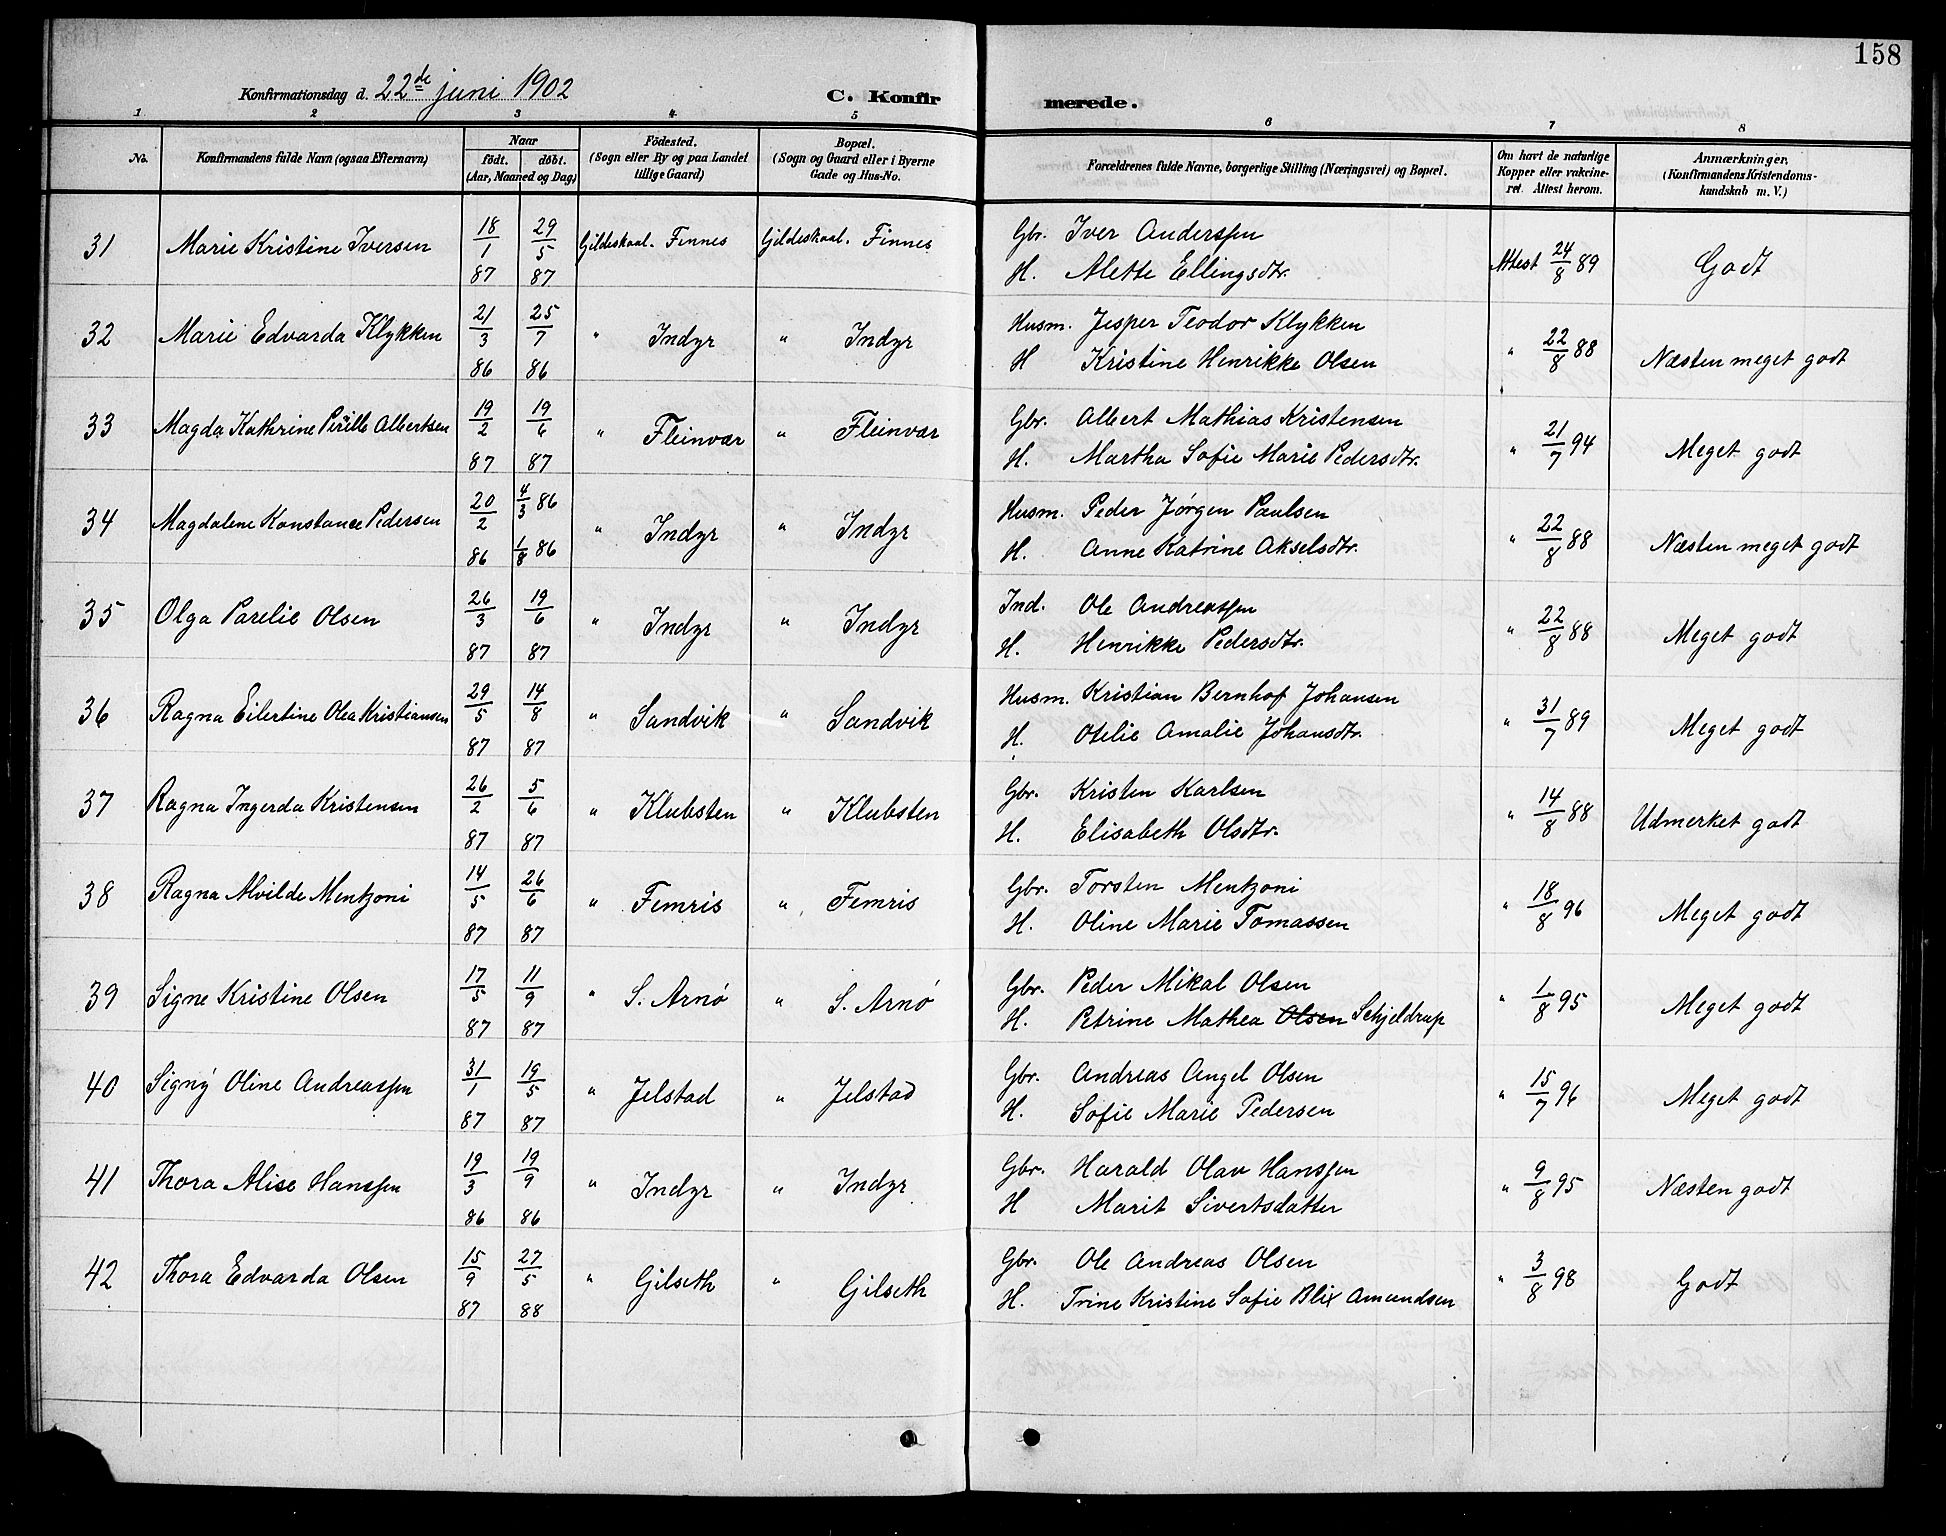 158
Konfirmationsdag d. 22de juni 1902
C. Konfirmerede.
1 2 3 4 5 6 7 8
No.
Konfirmandens fulde Navn (ogsaa Efternavn)
Naar
födt. döbt.
(Aar, Maaned og Dag)
Födested.
(Sogn eller By og paa Landet
tillige Gaard)
Bopæl.
(Sogn og Gaard eller i Byerne
Gade og Hus-No.
Forældrenes fulde Navne, borgerlige Stilling (Næringsvei) og Bopæl.
Om havt de naturlige
Kopper eller vakcine-
ret. Attest herom.
Anmærkninger.
(Konfirmandens Kristendoms-
kundskab m. V.)
31 Marie Kristine Iversen 18/1 87 29/5 87 Gildeskaal. Finnes Gildeskaal. Finnes Gbr. Iver Anderssen Attest 24/8 89 Godt
H. Alette Ellingsdtr.
32 Marie Edvarda Klykken 21/3 86 25/7 86 " Indyr " Indyr Husm. Jesper Teodor Klykken " 22/8 88 Næsten meget godt
H Kristine Henrikke Olsen
33 Magda Kathrine Pirille Albertsen 19/2 87 19/6 87 " Fleinvær " Fleinvær Gbr. Albert Mathias Kristensen " 21/7 94 Meget godt
H. Martha Sofie Marie Pedersdtr.
34 Magdalene Konstance Pedersen 20/2 86 4/3 86 1/8 86 " Indyr " Indyr Husm. Peder Jørgen Paulsen " 22/8 88 Næsten meget godt
H. Anne Katrine Akselsdtr.
35 Olga Parelie Olsen 26/3 87 19/6 87 " Indyr " Indyr Ind. Ole Andreassen " 22/8 88 Meget godt
H. Henrikke Pedersdtr.
36 Ragna Eilertine Olea Kristiansen 29/5 87 14/8 87 " Sandvik " Sandvik Husm. Kristian Bernhof Johansen " 31/7 89 Meget godt
H. Otelie Amalie Johansdtr.
37 Ragna Ingerda Kristensen 26/2 87 5/6 87 " Klubsten " Klubsten Gbr. Kristen Karlsen " 14/8 88 Udmerket godt
H. Elisabeth Olsdtr.
38 Ragna Alvilde Mentzoni 14/5 87 26/6 87 " Femris " Femris Gbr. Torsten Mentzoni " 18/8 96 Meget godt
H. Oline Marie Tomassen
39 Signe Kristine Olsen 17/5 87 11/9 87 " S. Arnø " S. Arnø Gbr. Peder Mikal Olsen " 1/8 95 Meget godt
H. Petrine Mathea Olsen Schjeldrup
40 Signy Oline Andreassen 31/1 87 19/5 87 " Jelstad " Jelstad Gbr. Andreas Angel Olsen " 15/7 96 Meget godt
H. Sofie Marie Pedersen
41 Thora Alise Hanssen 19/3 86 19/9 86 " Indyr " Indyr Gbr. Harald Olav Hanssen " 9/8 95 Næsten godt
H Marit Sivertsdatter
42 Thora Edvarda Olsen 15/9 87 27/5 88 " Gilseth " Gilseth Gbr. Ole Andreas Olsen " 3/8 98 Godt
H. Trine Kristine Sofie Blix Amundsen